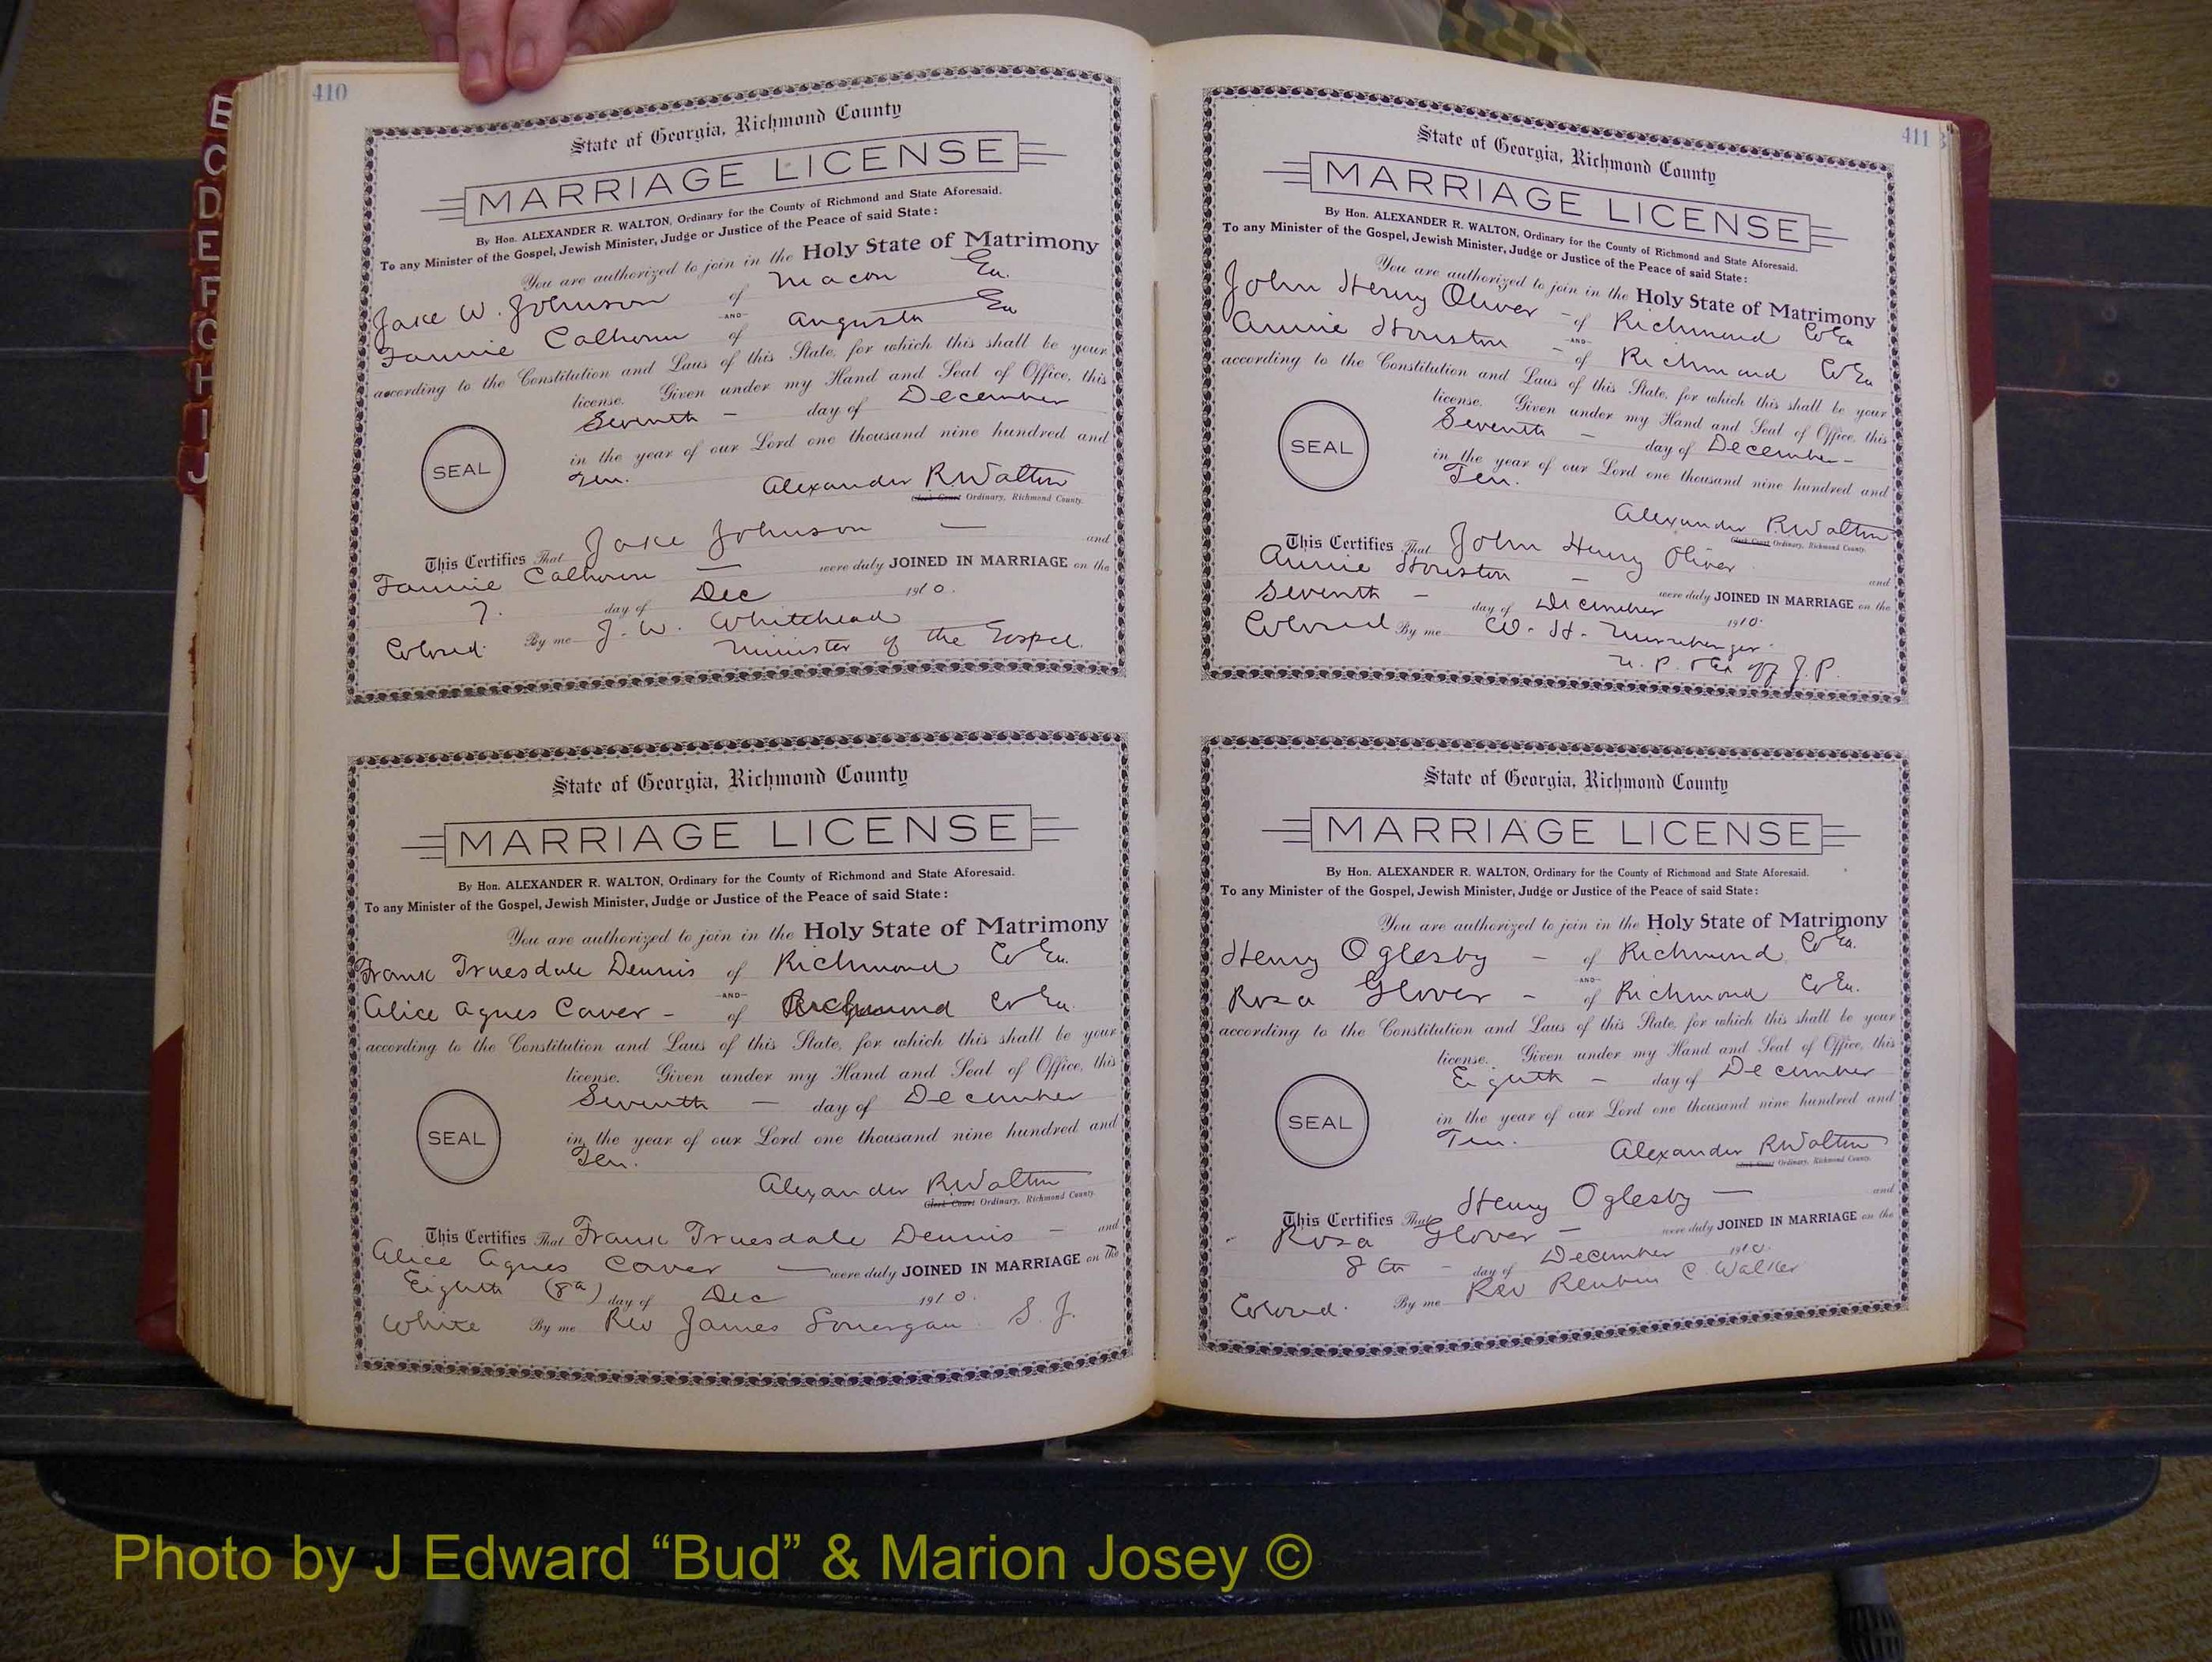 B
C
D
E
F
G
H
I
J
410
State of Georgia, Richmond County
MARRIAGE LICENSE
By Hon. ALEXANDER R. WALTON, Ordinary for the County of Richmond and State Aforesaid.
To any Minister of the Gospel, Jewish Minister, Judge or Justice of the Peace of said State:
You are authorized to join in the Holy State of Matrimony
Jake W. Johnson of Macon Ga.
-AND-
Fannie Calhoun of Augusta Ga
according to the Constitution and Laws of this State, for which this shall be your
license. Given under my Hand and Seal of Office, this
Seventh - day of December
SEAL
in the year of our Lord one thousand nine hundred and
Ten.
Alexander R Walton
Clerk Court Ordinary, Richmond County.
This Certifies That Jake Johnson — and
Fannie Calhoun — were duly JOINED IN MARRIAGE on the
7. day of Dec 1910.
Colored. By me J. W. Whitehead
Minister of the Gospel.
State of Georgia, Richmond County
MARRIAGE LICENSE
By Hon. ALEXANDER R. WALTON, Ordinary for the County of Richmond and State Aforesaid.
To any Minister of the Gospel, Jewish Minister, Judge or Justice of the Peace of said State:
You are authorized to join in the Holy State of Matrimony
Frank Truesdale Dennis of Richmond Co Ga.
-AND-
Alice Agnes Caver - of Richmond Co Ga.
according to the Constitution and Laws of this State, for which this shall be your
license. Given under my Hand and Seal of Office, this
Seventh — day of December
SEAL
in the year of our Lord one thousand nine hundred and
Ten.
Alexander R Walton
Clerk Court Ordinary, Richmond County.
This Certifies That Frank Truesdale Dennis — and
Alice Agnes Caver — were duly JOINED IN MARRIAGE on the
Eighth day of Dec 1910.
White By me Rev James Lonergan S. J.
411
State of Georgia, Richmond County
MARRIAGE LICENSE
By Hon. ALEXANDER R. WALTON, Ordinary for the County of Richmond and State Aforesaid.
To any Minister of the Gospel, Jewish Minister, Judge or Justice of the Peace of said State:
You are authorized to join in the Holy State of Matrimony
John Henry Oliver - of Richmond Co Ga
-AND-
Annie Houston - of Richmond Co Ga
according to the Constitution and Laws of this State, for which this shall be your
license. Given under my Hand and Seal of Office, this
Seventh - day of December -
SEAL
in the year of our Lord one thousand nine hundred and
Ten.
Alexander R Walton
Clerk Court Ordinary, Richmond County.
This Certifies That John Henry Oliver and
Annie Houston - were duly JOINED IN MARRIAGE on the
Seventh - day of December 1910.
Colored By me W. H.
N. P. & Ex off J. P.
State of Georgia, Richmond County
MARRIAGE LICENSE
By Hon. ALEXANDER R. WALTON, Ordinary for the County of Richmond and State Aforesaid.
To any Minister of the Gospel, Jewish Minister, Judge or Justice of the Peace of said State:
You are authorized to join in the Holy State of Matrimony
Henry Oglesby - of Richmond Co Ga.
-AND-
Rosa Glover - of Richmond Co Ga.
according to the Constitution and Laws of this State, for which this shall be your
license. Given under my Hand and Seal of Office, this
Eighth - day of December
SEAL
in the year of our Lord one thousand nine hundred and
Ten.
Alexander R Walton
Clerk Court Ordinary, Richmond County.
This Certifies That Henry Oglesby — and
Rosa Glover - were duly JOINED IN MARRIAGE on the
8th - day of December 1910.
Colored. By me Rev Reubin C Walker
Photo by J Edward “Bud” & Marion Josey ©